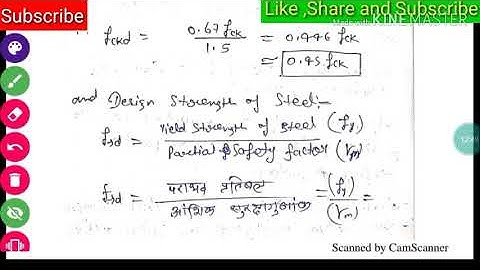 Subscribe
Like ,Share and Subscribe
KINEMASTER
fckd = 0.67 fck / 1.5 = 0.446 fck
≈ 0.45 fck
and Design Strength of Steel:-
fyd = Yield Strength of Steel (fy) / Partial Safety factor (γm)
fyd = पराभव प्रतिबल / आंशिक सुरक्षा गुणांक = (fy) / (γm) =
Scanned by CamScanner